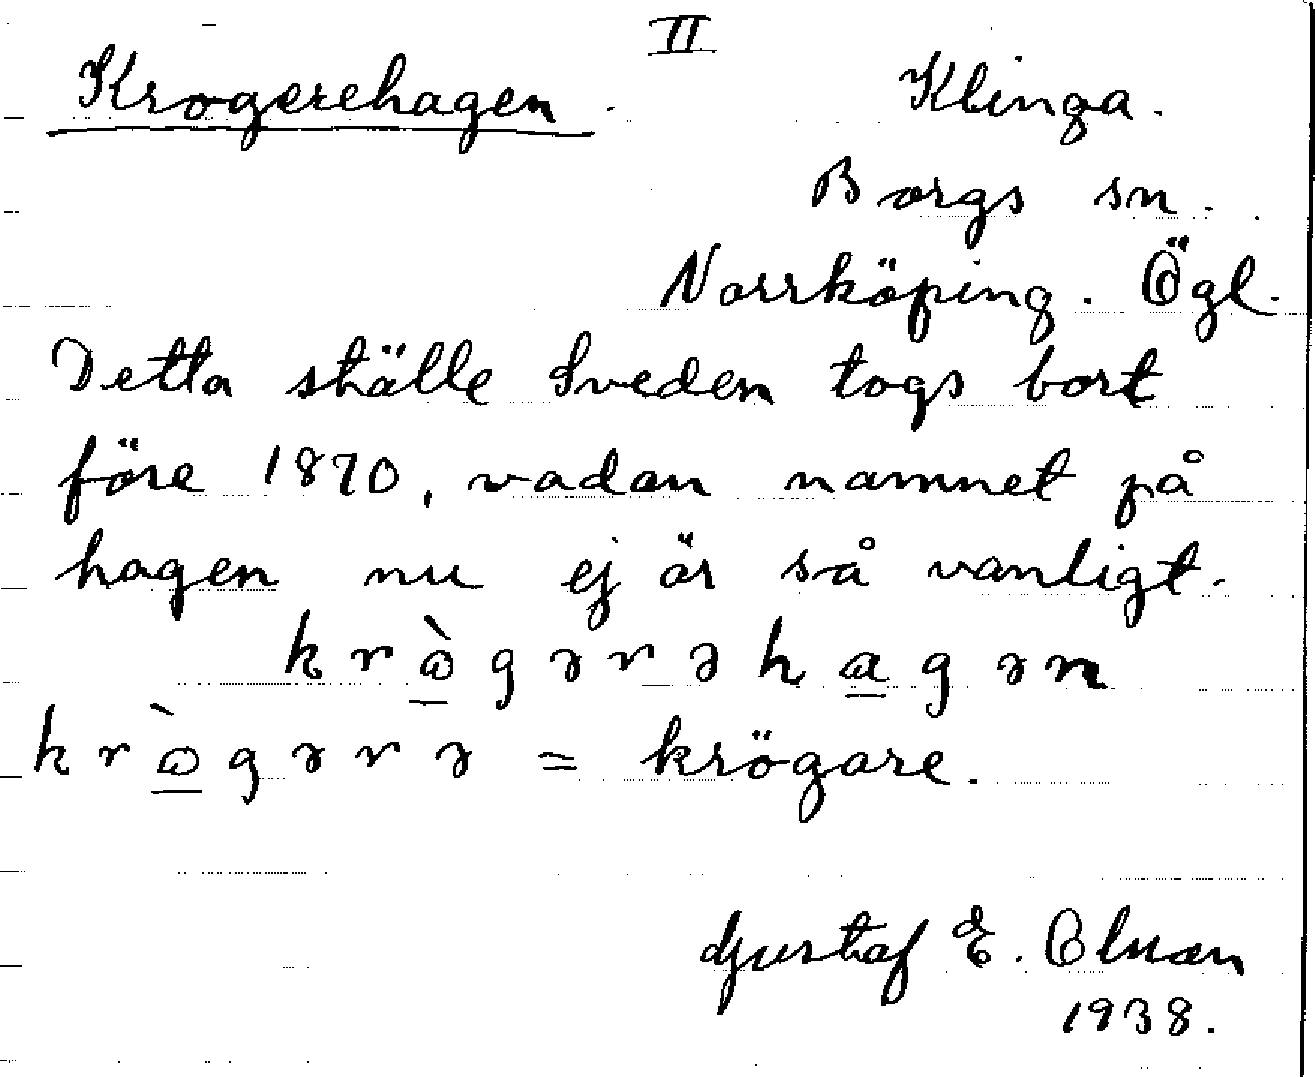 II
Krogerehagen. Klinga.
Borgs sn.
Norrköping. Ögl.
Detta ställe Sveden togs bort
före 1870, vadan namnet på
hagen nu ej är så vanligt.
krɷ̀gərəhagən
krɷ̀gərə = krögare.
Gustaf E. Olman
1938.